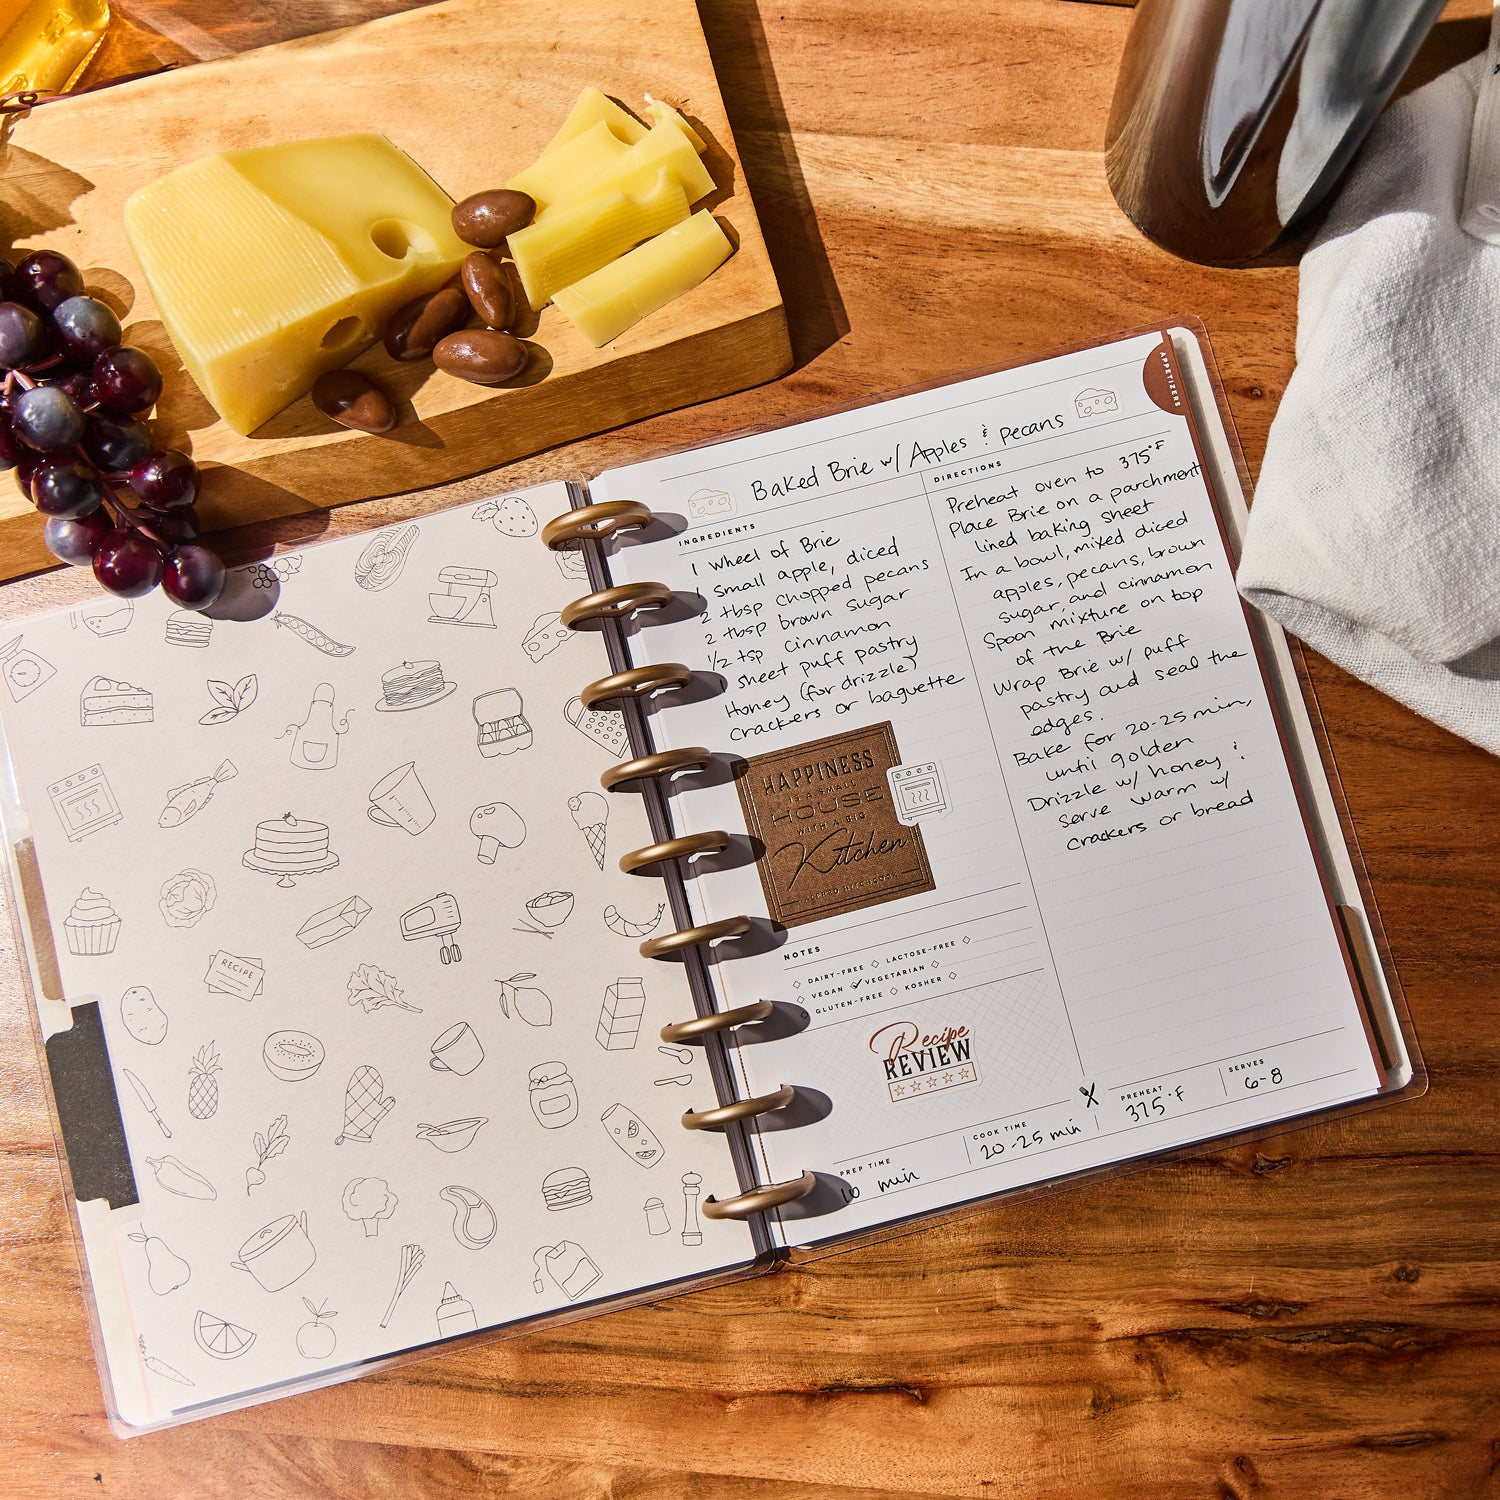 RECIPE
APPETIZERS
Baked Brie w/ Apples & pecans
INGREDIENTS
1 wheel of Brie
1 small apple, diced
2 tbsp chopped pecans
2 tbsp brown sugar
1/2 tsp cinnamon
1 sheet puff pastry
Honey (for drizzle)
crackers or baguette
HAPPINESS
IS A SMALL
HOUSE
WITH A BIG
Kitchen
NOTES
DAIRY-FREE ◇ LACTOSE-FREE ◇
VEGAN ✓ VEGETARIAN ◇
GLUTEN-FREE ◇ KOSHER ◇
Recipe
REVIEW
DIRECTIONS
Preheat oven to 375°F
Place Brie on a parchment
lined baking sheet
In a bowl, mixed diced
apples, pecans, brown
sugar, and cinnamon
Spoon mixture on top
of the Brie
Wrap Brie w/ puff
pastry and seal the
edges.
Bake for 20-25 min,
until golden
Drizzle w/ honey &
serve warm w/
crackers or bread
PREP TIME
10 min
COOK TIME
20-25 min
PREHEAT
375°F
SERVES
6-8